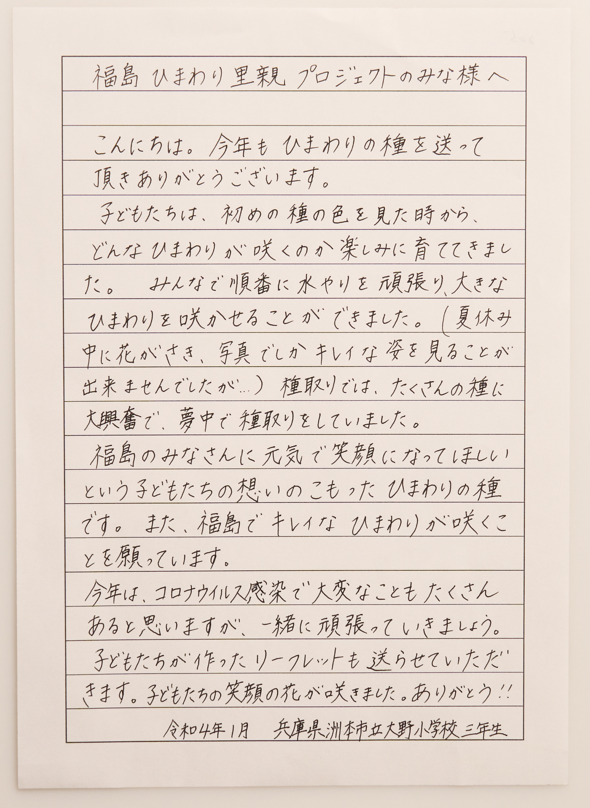 福島 ひまわり里親 プロジェクトのみな様へ
こんにちは。今年も ひまわりの種を送って
頂きありがとうございます。
子どもたちは、初めの種の色を見た時から、
どんなひまわりが咲くのか楽しみに育ててきまし
た。 みんなで順番に水やりを頑張り、大きな
ひまわりを咲かせることができました。(夏休み
中に花がさき、写真でしかキレイな姿を見ることが
出来ませんでしたが…) 種取りでは、たくさんの種に
大興奮で、夢中で種取りをしていました。
福島のみなさんに元気で笑顔になってほしい
という子どもたちの想いのこもったひまわりの種
です。また、福島でキレイなひまわりが咲くこ
とを願っています。
今年は、コロナウイルス感染で大変なこともたくさん
あると思いますが、一緒に頑張っていきましょう。
子どもたちが作ったリーフレットも送らせていただ
きます。子どもたちの笑顔の花が咲きました。ありがとう!!
令和4年1月 兵庫県洲本市立大野小学校三年生